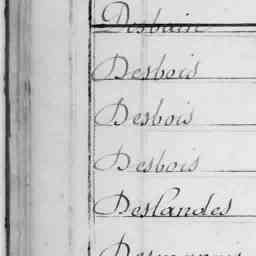 Desbain
Desbois
Desbois
Desbois
Deslandes